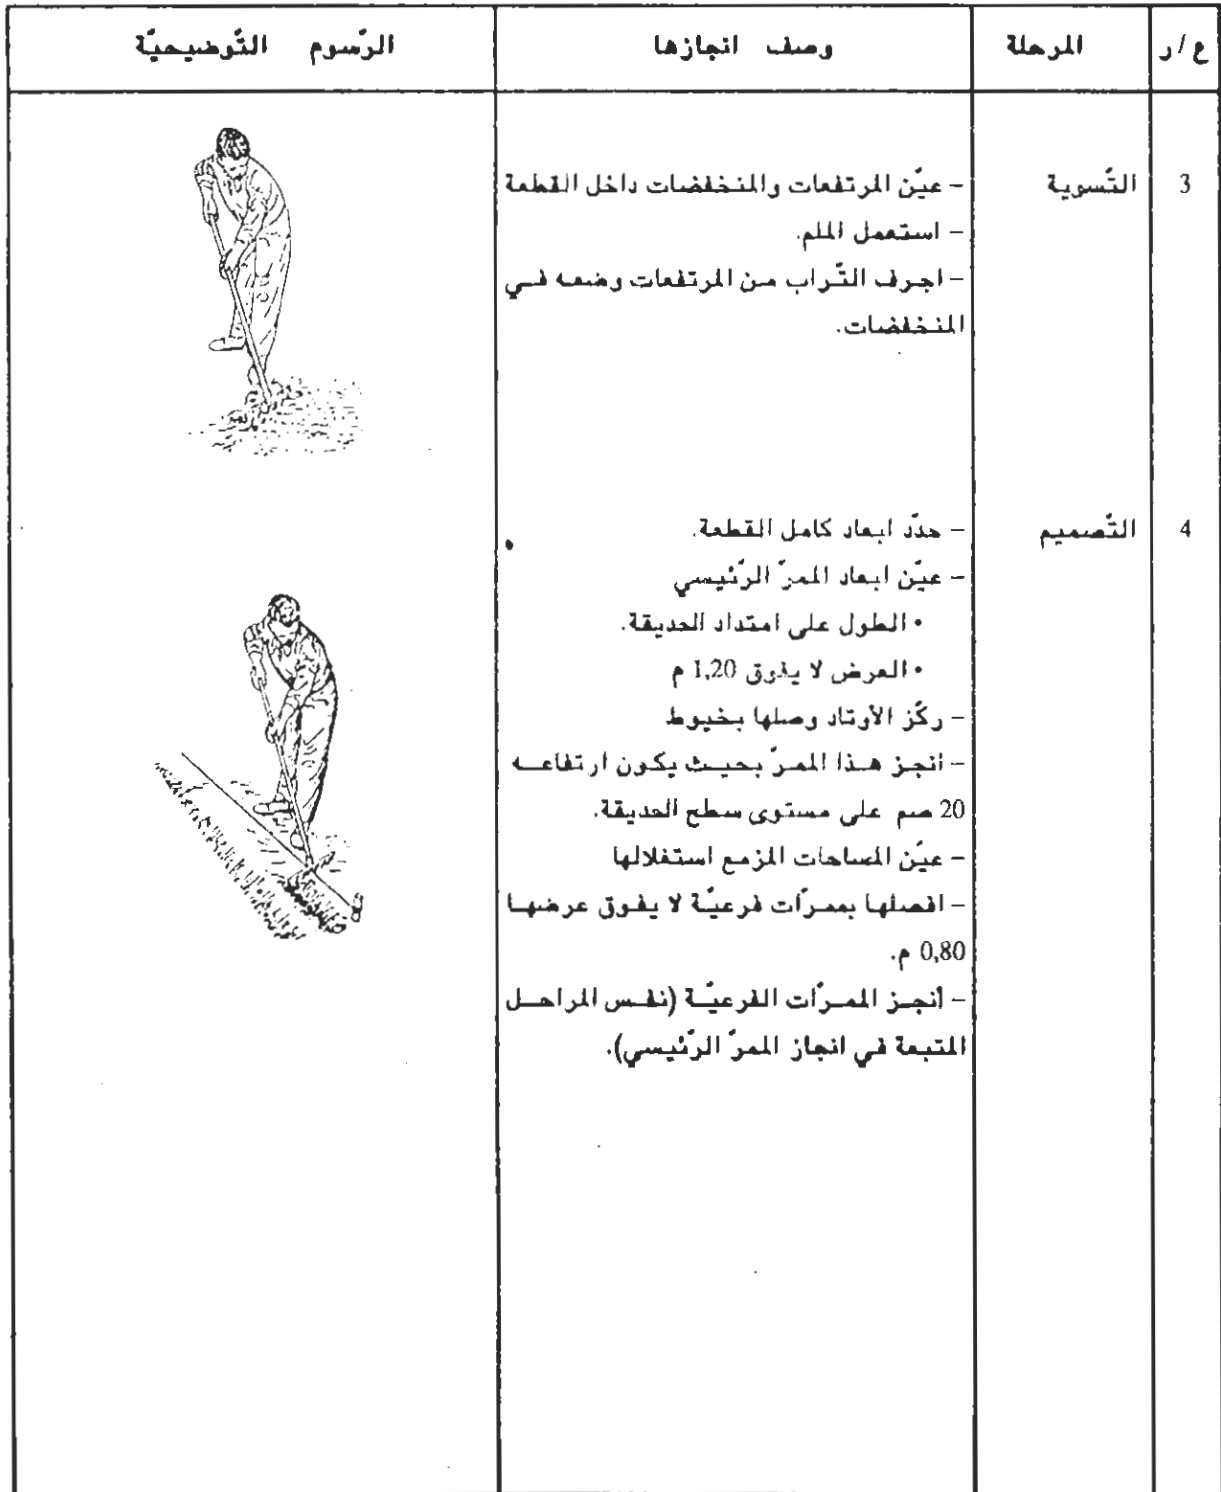 ع/ر المرحلة وصف انجازها الرّسوم التّوضيحيّة
3 التّسوية – عيّن المرتفعات والمنخفضات داخل القطعة
– استعمل الملم.
– اجرف التّراب من المرتفعات وضعه في
المنخفضات.
4 التّصميم – حدّد ابعاد كامل القطعة.
– عيّن ابعاد الممرّ الرّئيسي
• الطول على امتداد الحديقة.
• العرض لا يفوق 1,20 م
– ركّز الأوتاد وصلها بخيوط
– انجز هذا الممرّ بحيث يكون ارتفاعه
20 صم على مستوى سطح الحديقة.
– عيّن المساحات المزمع استغلالها
– افصلها بممرّات فرعيّة لا يفوق عرضها
0,80 م.
– أنجز الممرّات الفرعيّة (نفس المراحل
المتبعة في انجاز الممرّ الرّئيسي).